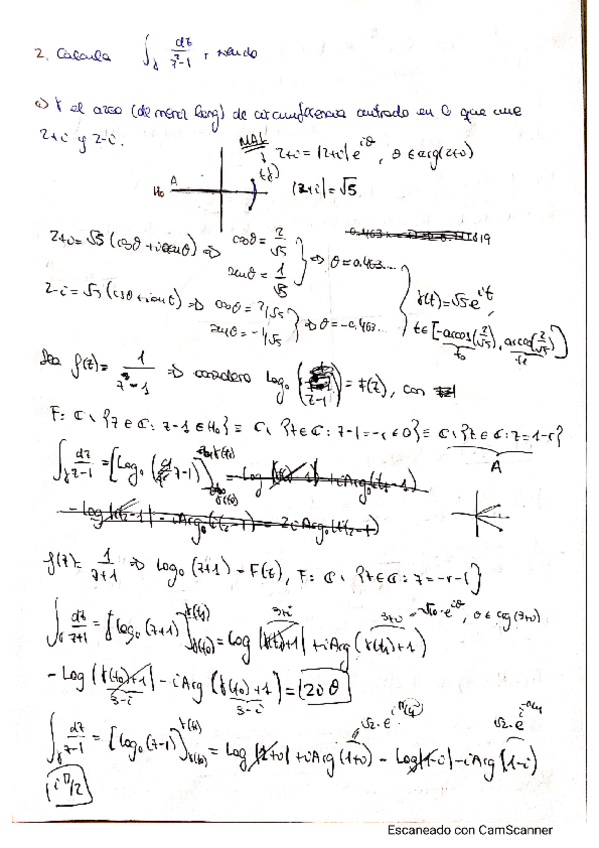 2. Calcula ∫_γ dz/(z²-1), siendo
a) γ el arco (de menor long) de circunferencia centrado en 0 que une
2+i y 2-i.
MAL
2+i = |2+i| e^{iθ}, θ ∈ arg(2+i)
H₀ A
|2+i| = √5
2+i = √5 (cosθ + i senθ) ⇒ cosθ = 2/√5
senθ = 1/√5 ⇒ θ = 0.463...
2-i = √5 (cosθ + i senθ) ⇒ cosθ = 2/√5
senθ = -1/√5 ⇒ θ = -0.463...
γ(t) = √5 e^{it}
t ∈ [-arccos(2/√5), arccos(2/√5)]
t₀ t₁
Sea f(z) = 1/(z-1) ⇒ considero Log₀(z-1) = F(z), con
F: ℂ \ {z ∈ ℂ: z-1 ∈ H₀} ≡ ℂ \ {z ∈ ℂ: z-1 = -r ≤ 0} ≡ ℂ \ {z ∈ ℂ: z = 1-r}
A
∫_γ dz/(z-1) = [Log₀(z-1)]_{γ(t₀)}^{γ(t₁)}
f(z) = 1/(z+1) ⇒ Log₀(z+1) = F(z), F: ℂ \ {z ∈ ℂ: z = -r-1}
∫_γ dz/(z+1) = [Log₀(z+1)]_{γ(t₀)}^{γ(t₁)} = Log|γ(t₁)+1| + iArg(γ(t₁)+1)
3+i 3+i = √10·e^{iθ}, θ ∈ arg(3+i)
- Log|γ(t₀)+1| - iArg(γ(t₀)+1) = 2iθ
3-i 3-i
√2·e^{iπ/4} √2·e^{-iπ/4}
∫_γ dz/(z-1) = [Log₀(z-1)]_{γ(t₀)}^{γ(t₁)} = Log|1+i| + iArg(1+i) - Log|1-i| - iArg(1-i)
iπ/2
Escaneado con CamScanner